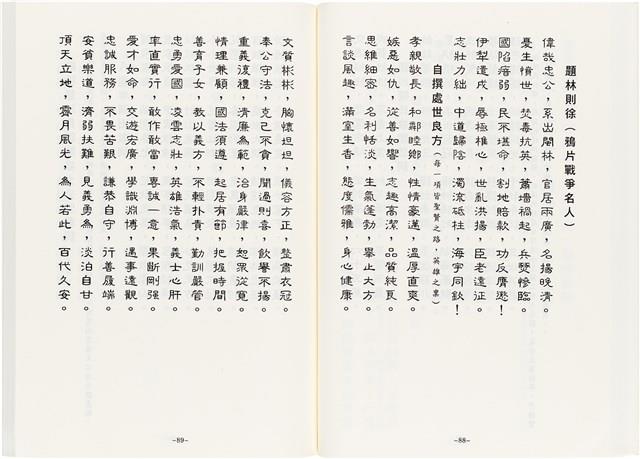 題林則徐(鴉片戰爭名人)
偉哉忠公,系出閩林,官居兩廣,名揚晚清。
憂生憤世,焚毒抗英,蕭墻禍起,兵燹慘臨。
國陷瘠弱,民不堪命,割地賠款,功反膺愆!
伊犁遣戍,辱極椎心,世亂洪揚,臣老遠征。
志壯力絀,中道歸陰,濁流砥柱,海宇同欽!
自撰處世良方(每一項皆聖賢之路,英雄之業)
孝親敬長,和鄰睦鄉,性情豪邁,溫厚直爽。
嫉惡如仇,從善如響,志趣高潔,品質純良。
思維細密,名利恬淡,生氣蓬勃,舉止大方。
言談風趣,滿室生香,態度儒雅,身心健康。
-88-
文質彬彬,胸懷坦坦,儀容方正,整肅衣冠。
奉公守法,克己不貪,聞過則喜,飲譽不揚。
重義復禮,清廉為範,治身嚴律,恕眾從寬。
情理兼顧,國法須遵,起居有節,把握時間。
善育子女,教以義方,不輕扑責,勤訓嚴管。
忠勇愛國,凌雲志壯,英雄浩氣,義士心肝。
率直實行,敢作敢當,專誠一意,果斷剛强。
愛才如命,交遊宏廣,學識淵博,遇事達觀。
忠誠服務,不畏苦艱,謙恭自守,行善履端。
安貧樂道,濟弱扶難,見義勇為,淡泊自甘。
頂天立地,霽月風光,為人若此,百代久安。
-89-